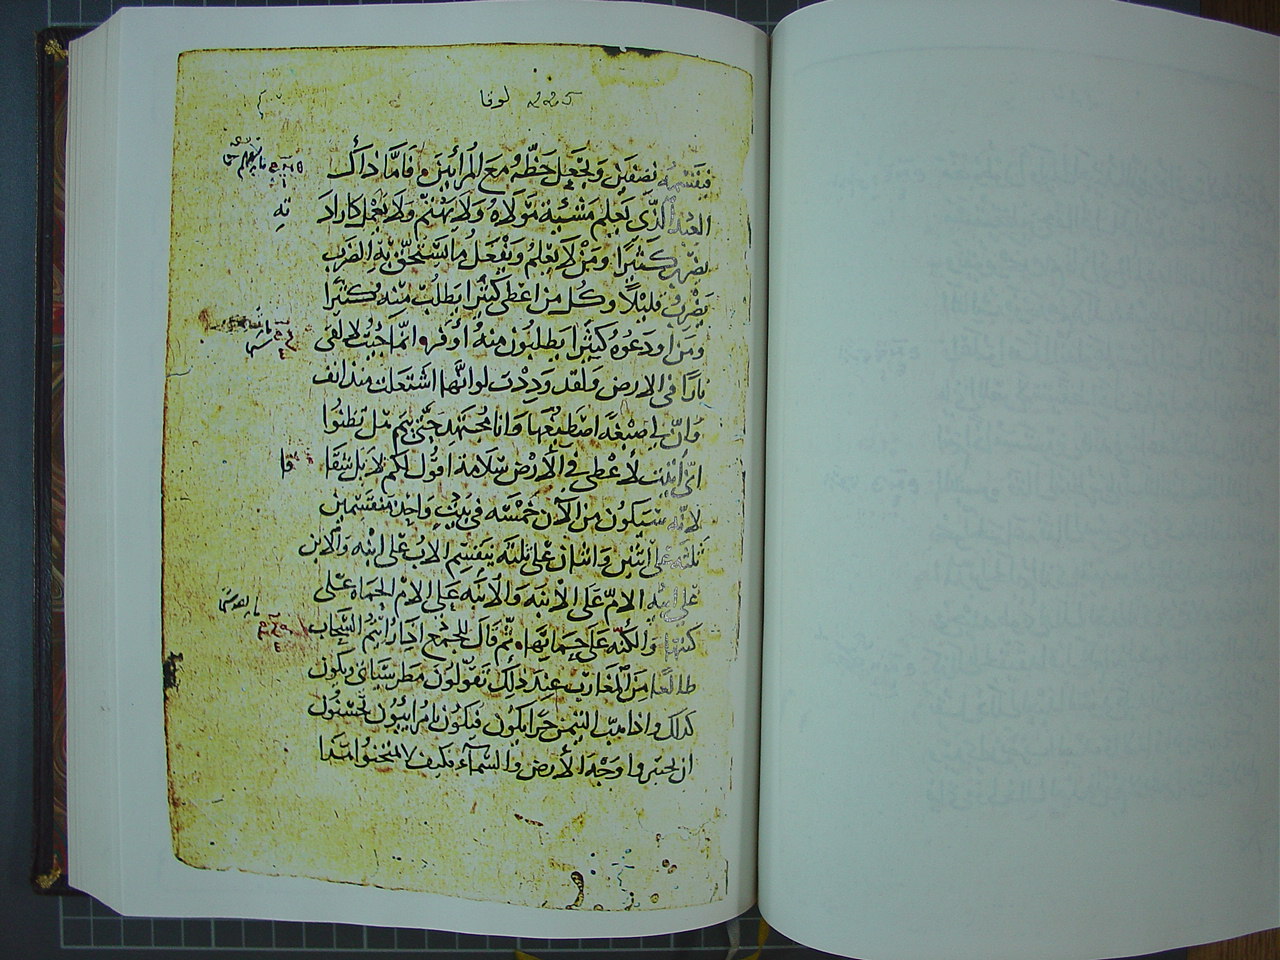 225 لوقا
فيقسمه نصفين وَيجْعَل حَظّهُ مَع المُرائِينَ فَامَّا ذاكَ
العَبْد الّذى يَعْلم مَشْئِية مَوْلَاهُ وَلَا يهْتمّ وَلَا يعْمَل كما رادَ
يضرب كَثيرًا ومَنْ لَا يعْلمُ وَيَفْعَلُ ما يَسْتحقّ بهِ الضَربَ
يَضْربُ قليْلاً وكُل من اعْطى كَثيْرًا يَطلبُ مِنْهُ كثيرًا
ومَن اودَعُوهُ كثِيرًا يطلبُون منهُ اوْفر انّما جِيْتُ لالقى
نارًا فى الارض وَلَقد وَدِدْت لو انّهَا اشتعَلت منذ انف
وَانّ لى صبْغَةً اصْطبغُهَا وَانا مُجتهد حَتّى يتم هَل تظنوُا
انّى اتيْت لاُعْطى فى الاَرْض سَلَامة اقوُل لكم لَا بل شقَا
قا
لانّه سَيكون مِن الآن خَمْسَه فى بَيْتٍ وَاحِد منقسِمين
ثلثَه عَلى اثنين وَاثنان عَلى ثلثَه يَنقسِم الابُ عَلى ابنْه وَالابن
عَلى ابيه الامّ عَلى الابْنَه وَالابنَه عَلى الامّ الحَماة عَلى
كنتها والكَنّه عَلى حمَاتها ثمّ قَال للجمْع اذَا رَايتمُ السَّحَاب
طالعًا مِن المَغارب عِندَ ذلِكَ تَقوُلوُن مَطر سَيَاتى وَيكون
كذلك واذا هبّ التيْمن حَرّا يكُون فيَكُون يا مُرايئون تحسْنوُن
ان تختبروا وَجْه الأرض والسّمآء فكيف لا تمتحنوا هَذا